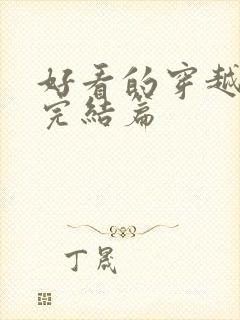 好看的穿越
完结篇
丁晟